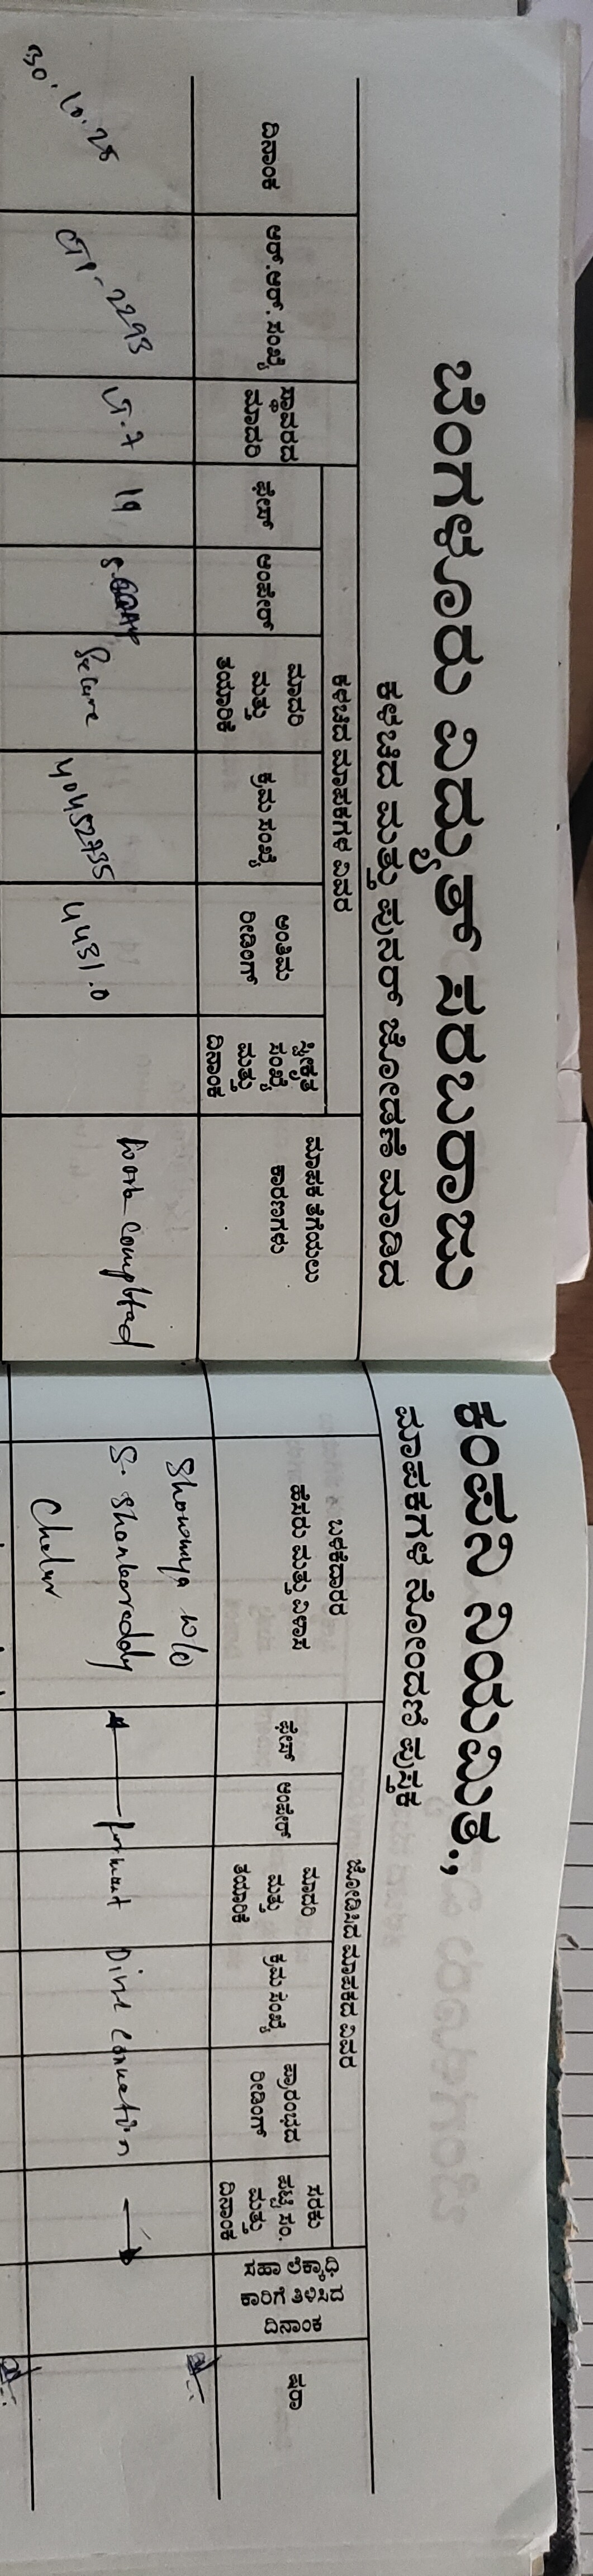 ಬೆಂಗಳೂರು ವಿದ್ಯುತ್ ಸರಬರಾಜು ಕಂಪನಿ ನಿಯಮಿತ.,
ಕಳಚಿದ ಮತ್ತು ಪುನರ್ ಜೋಡಣೆ ಮಾಡಿದ ಮಾಪಕಗಳ ನೋಂದಣಿ ಪುಸ್ತಕ
ಕಳಚಿದ ಮಾಪಕಗಳ ವಿವರ
ದಿನಾಂಕ
ಆರ್.ಆರ್. ಸಂಖ್ಯೆ
ಸ್ಥಾವರದ
ಮಾದರಿ
ಫೇಸ್
ಆಂಪೇರ್
ಮಾದರಿ
ಮತ್ತು
ತಯಾರಿಕೆ
ಕ್ರಮ ಸಂಖ್ಯೆ
ಅಂತಿಮ
ರೀಡಿಂಗ್
ಸ್ವೀಕೃತ
ಸಂಖ್ಯೆ
ಮತ್ತು
ದಿನಾಂಕ
ಮಾಪಕ ತೆಗೆಯಲು
ಕಾರಣಗಳು
ಬಳಕೆದಾರರ
ಹೆಸರು ಮತ್ತು ವಿಳಾಸ
ಜೋಡಿಸಿದ ಮಾಪಕದ ವಿವರ
ಫೇಸ್
ಆಂಪೇರ್
ಮಾದರಿ
ಮತ್ತು
ತಯಾರಿಕೆ
ಕ್ರಮ ಸಂಖ್ಯೆ
ಪ್ರಾರಂಭದ
ರೀಡಿಂಗ್
ಸರಕು
ಪಟ್ಟಿ ಸಂ.
ಮತ್ತು
ದಿನಾಂಕ
ಸಹಾ ಲೆಕ್ಕಾಧಿ
ಕಾರಿಗೆ ತಿಳಿಸಿದ
ದಿನಾಂಕ
ಷರಾ
30.10.25
CTP-2293
LT.7
1φ
Secure
40452735
4431.0
Work Completed
Showmya w/o
S. Shankareddy
Chelur
Permant Dis Connection